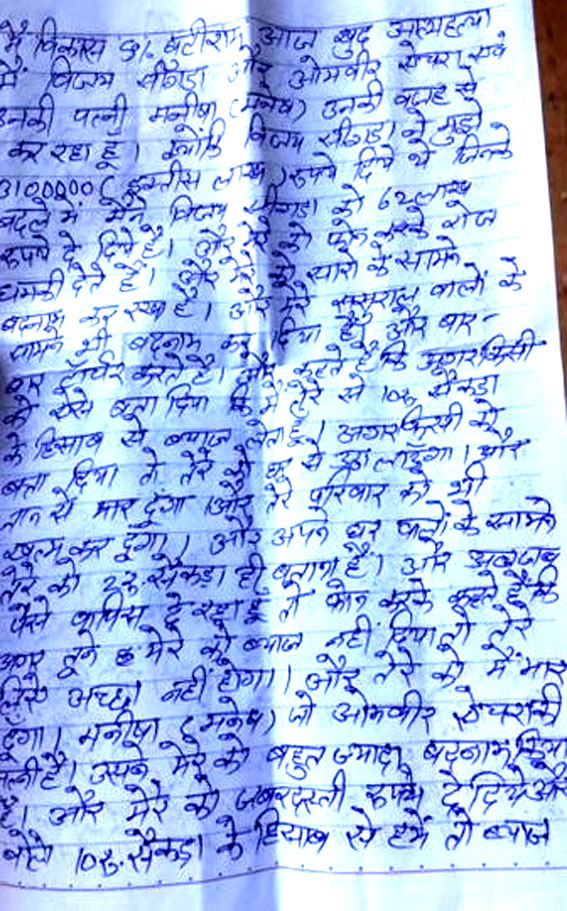 मैं विकास S/o घटीराम आज खुद आत्महत्या
मैं विजय सीगडा और ओमवीर खेचरा एवं
उनकी पत्नी मनीषा (मनेष) उनकी वजह से
कर रहा हूँ। क्योंकि विजय सीगडा ने मुझे
3100000 (इकत्तीस लाख) रुपये दिये थे जिनके
बदले में मैंने विजय सीगडा को 62 लाख
रुपये दे दिये है। और मेरे को फोन करके रोज
धमकी देते हैं। और मेरे को सारो के सामने
बदनाम कर रखा है। और मेरे ससुराल वालों के
सामने भी बदनाम कर दिया है और बार-
बार टॉर्चर करते है। और कहते है कि अगर किसी
को ऐसे बता दिया कि मैं तेरे से 10रु सैकडा
के हिसाब से ब्याज लेता हूँ। अगर किसी को
बता दिया तो तेरे को घर से उठा लाऊँगा। और
जान से मार दूंगा। और तेरे परिवार को भी
खत्म कर दूंगा। और अपने घर वालों के सामने
तेरे को 2रु. सैकडा ही बताना है। और अब जब
पैसे वापिस दे रहा हूँ तो फोन करके कहते है कि
अगर तूने मेरे को ब्याज नहीं दिया तो तेरे
लिए अच्छा नहीं होगा। और तेरे को मैं मार
दूंगा। मनीषा (मनेष) जो ओमवीर खेचरा की
पत्नी है। उसने मेरे को बहुत ज्यादा बदनाम किया
है। और मेरे को जबरदस्ती रुपये दे दिये और
बोले 10रु. सैकडा के हिसाब से हमें तो ब्याज